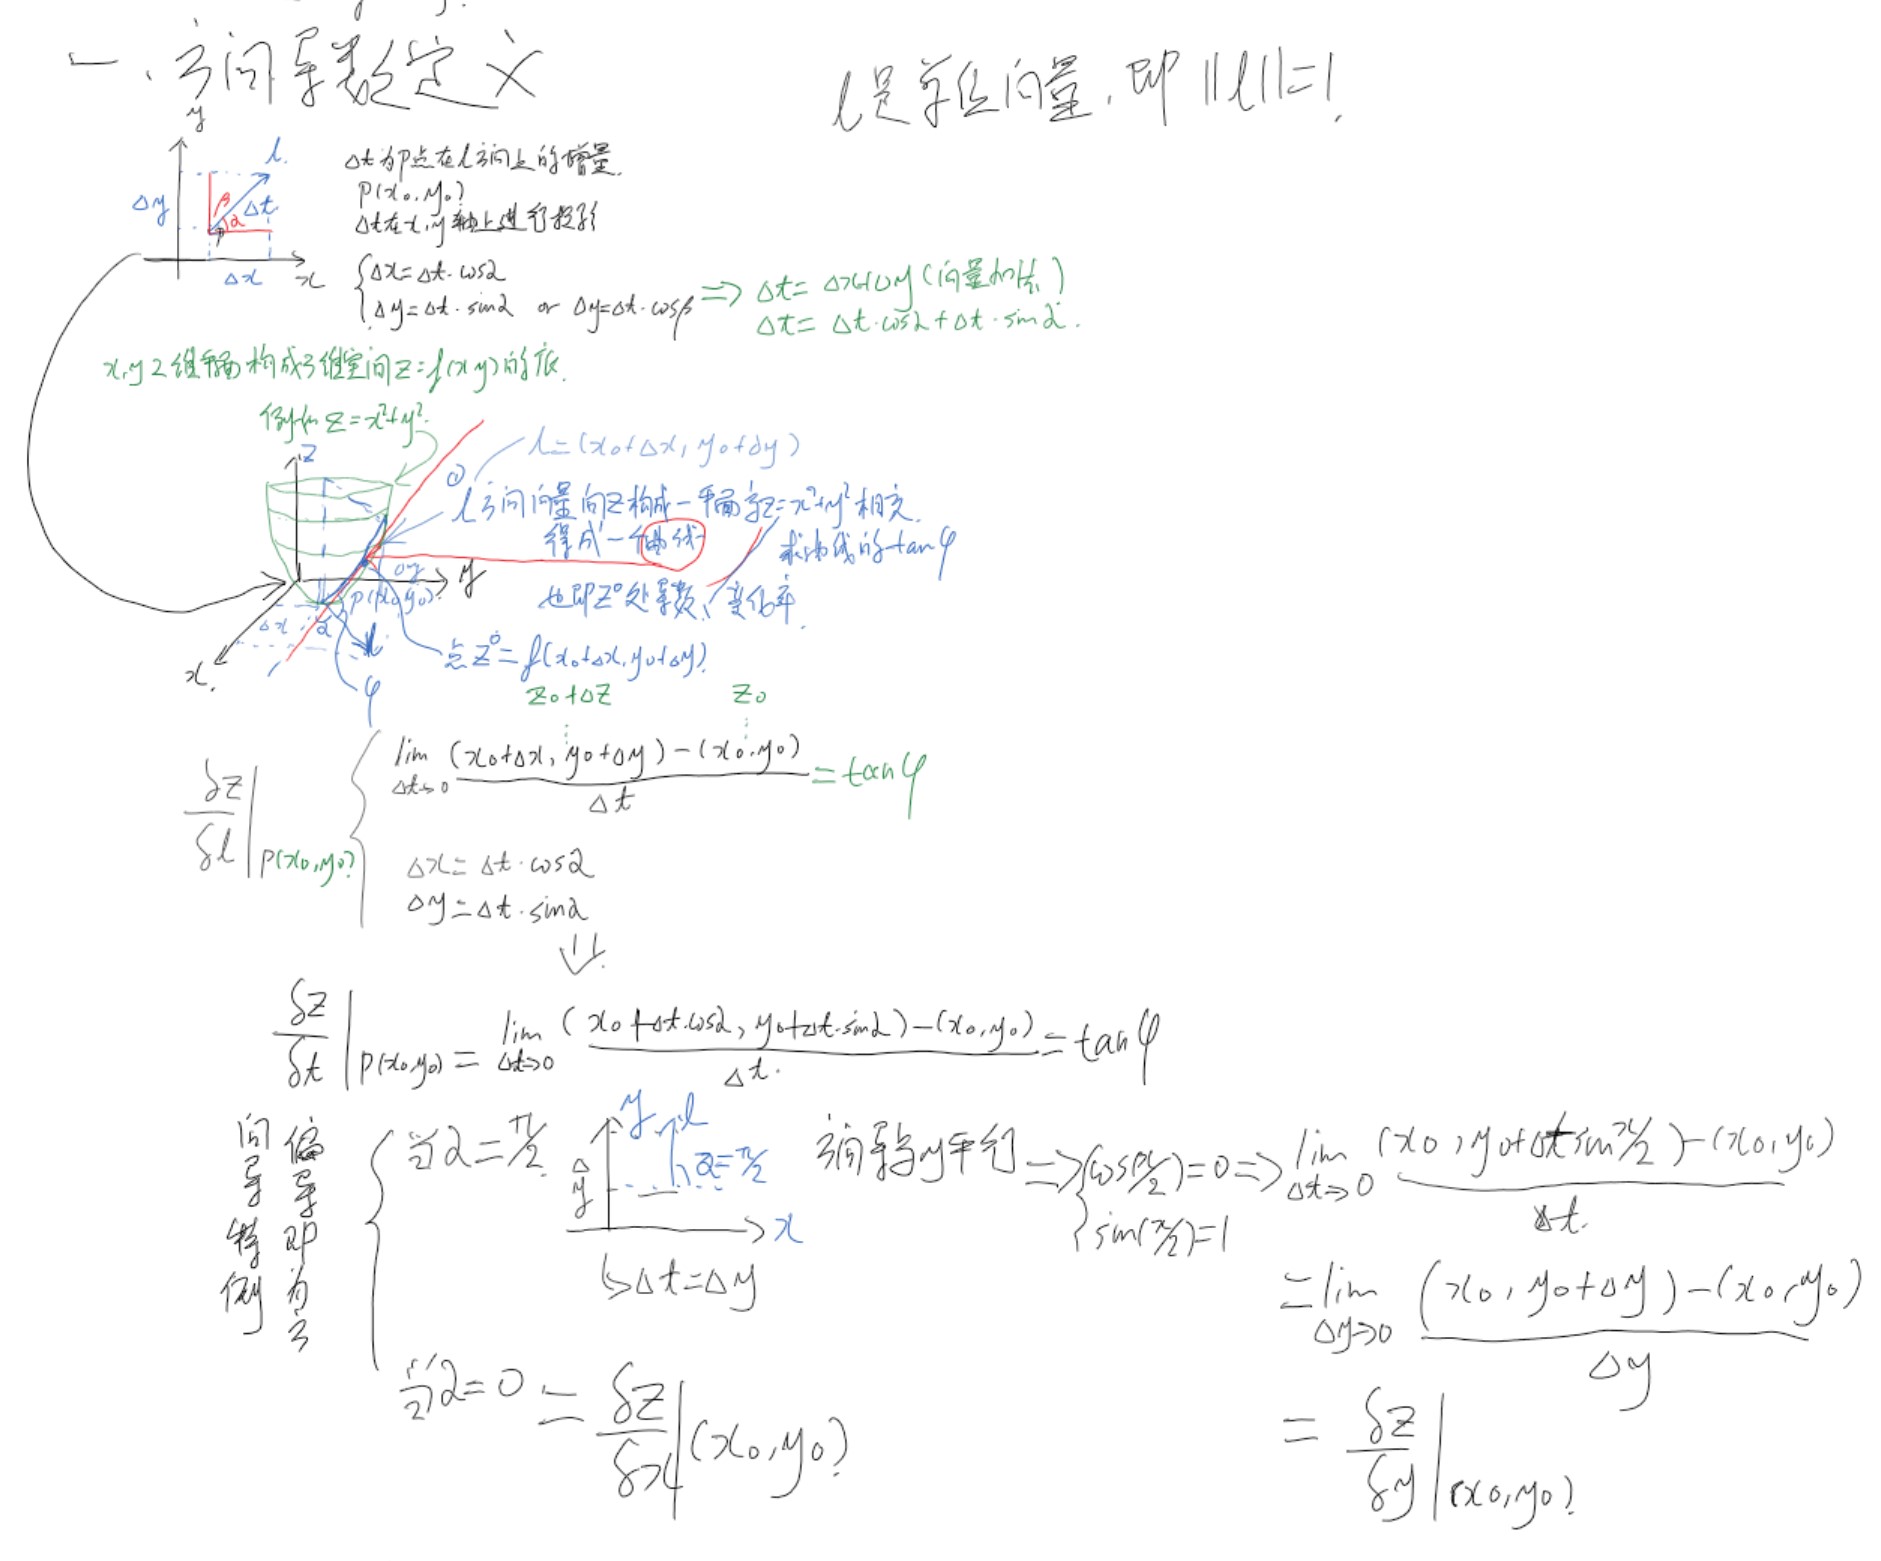 一、方向导数定义
l是单位向量,即||l||=1.
y
l.
Δy
β
Δt
α
P
Δx
x
Δt为P点在l方向上的增量.
P(x₀,y₀)
Δt在x,y轴上进行投影
{Δx=Δt·cosα
Δy=Δt·sinα or Δy=Δt·cosβ
=> Δt=Δx+Δy(向量加法)
Δt=Δt·cosα+Δt·sinα.
x,y 2维平面构成3维空间z=f(x y)的底.
例如 z=x²+y².
z
l=(x₀+Δx, y₀+Δy)
①
l方向向量向z构成一平面与z=x²+y²相交.
得成一个曲线
求曲线的tanφ
Δy
y
P(x₀,y₀)
也即z⁰处导数、变化率.
Δx
α
l
x.
点z⁰=f(x₀+Δx,y₀+Δy)
φ
z₀+Δz
z₀
δz/δl |P(x₀,y₀)
{lim Δt→0 ((x₀+Δx, y₀+Δy)-(x₀,y₀))/Δt =tanφ
Δx=Δt·cosα
Δy=Δt·sinα
⇓
δz/δt |P(x₀,y₀) = lim Δt→0 ((x₀+Δt·cosα, y₀+Δt·sinα)-(x₀,y₀))/Δt. =tanφ
偏导即为方
向导特例
{当α=π/2
y
l
Δy
α=π/2
x
↳Δt=Δy
方向导与y平行 => {cos(π/2)=0
sin(π/2)=1
=> lim Δt→0 ((x₀, y₀+Δt sinπ/2)-(x₀,y₀))/Δt.
=lim Δy→0 ((x₀, y₀+Δy)-(x₀,y₀))/Δy
= δz/δy |(x₀,y₀)
当α=0 = δz/δx |(x₀,y₀)